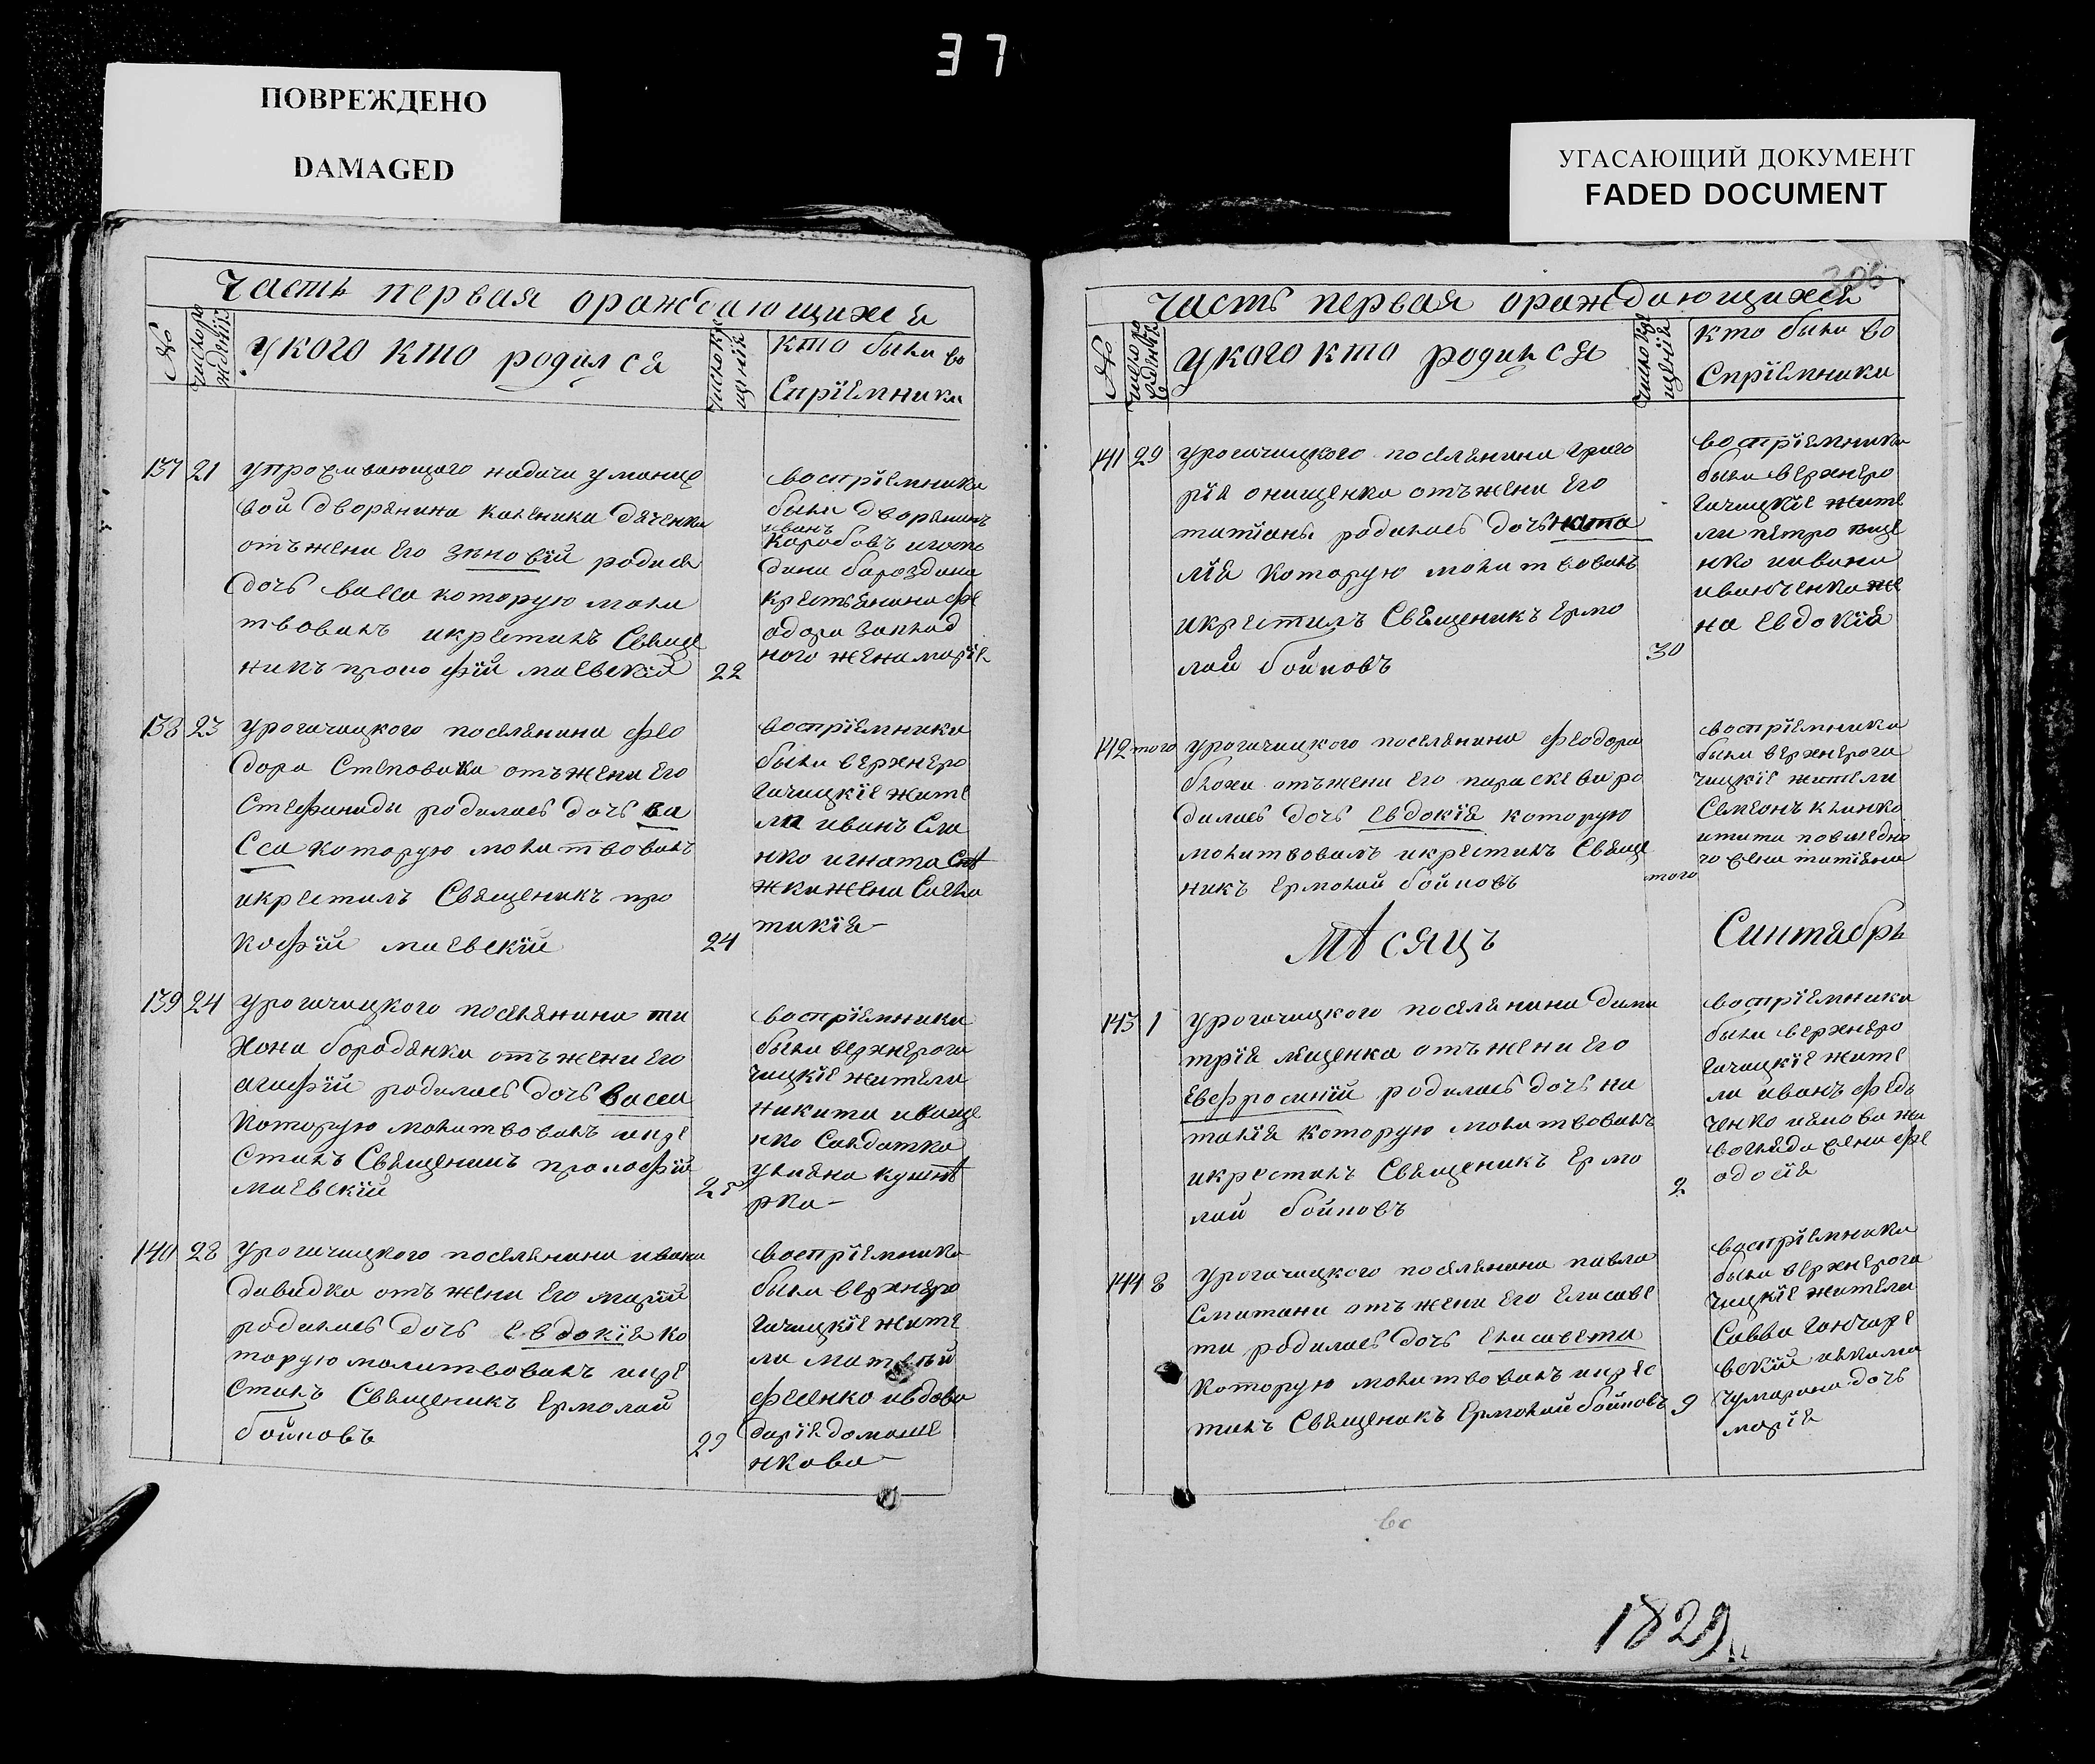 37
ПОВРЕЖДЕНО
DAMAGED
УГАСАЮЩИЙ ДОКУМЕНТ
FADED DOCUMENT
Часть первая ораждающихся
№
число ро
жденія
укого кто родился
число кре
щенія
кто были во
спріемники
137 21 упроживающаго
вой дворянина каленика даченка
отъ жени его зѣновій родися
дочь васса которую моли
твовалъ икрестилъ Свяще
никъ прокофій маевскій 22
воспріемники
были дворянинъ
иванъ
Коробовъ
крестьянина фе
одора
ного жена марія
138 23 урогачицкого поселянина фео
дора Степовика отъ жени его
Стефаниды родилась дочь ва
сса которую молитвовалъ
икрестилъ Священикъ про
кофій маевскій 24
воспріемники
были верхнеро
гачицкіе жите
ли иванъ Сли
нко игната
жена
тикія
139 24 урогачицкого поселянина ти
хона бородянка отъ жени его
агафій родилась дочь васса
которую молитвовалъ икре
стилъ Священикъ прокофій
маевскій 25
воспріемники
были верхнерога
чицкіе жители
никита иваще
нко Салдатка
уліяна
рка
140 28 урогачицкого поселянина ивана
давидка отъ жени его марій
родилась дочь евдокія ко
торую молитвовалъ икре
стилъ Священикъ ермолай
бойновъ 29
воспріемники
были верхнеро
гачицкіе жите
ли матвѣй
фесенко ивдова
дарія домаше
нкова
306
Часть первая ораждающихся
№
число ро
жденія
укого кто родился
число кре
щенія
кто были во
спріемники
141 29 урогачицкого поселянина григо
рія онищенка отъ жени его
татіаны родилась дочь ната
лія которую молитвовалъ
икрестилъ Священикъ ермо
лай бойновъ 30
воспріемники
были верхнеро
гачицкіе жите
ли петро
нко иивана
иванченка же
на евдокія
142 того урогачицкого поселянина феодора
блохи отъ жени его параскеви ро
дилась дочь евдокія которую
молитвовалъ икрестилъ Свяще
никъ ермолай бойновъ того
воспріемники
были верхнерога
чицкіе жители
Семіонъ клинко
го жена татіяна
Мѣсяцъ Синтябрь
143 1 урогачицкого поселянина дими
трія ляценка отъ жени его
евфросиній родилась дочь на
талія которую молитвовалъ
икрестилъ Священикъ ермо
лай бойновъ 2
воспріемники
были верхнеро
гачицкіе жите
ли иванъ федь
ченко
жена фе
одосія
144 8 урогачицкого поселянина павла
Смитани отъ жени его елисаве
ти родилась дочь елисавета
которую молитвовалъ икрес
тилъ Священикъ ермолай бойновъ 9
воспріемники
были верхнерога
чицкіе жители
Савва гончаре
вскій иякима
чумарина дочь
марія
вс
1829